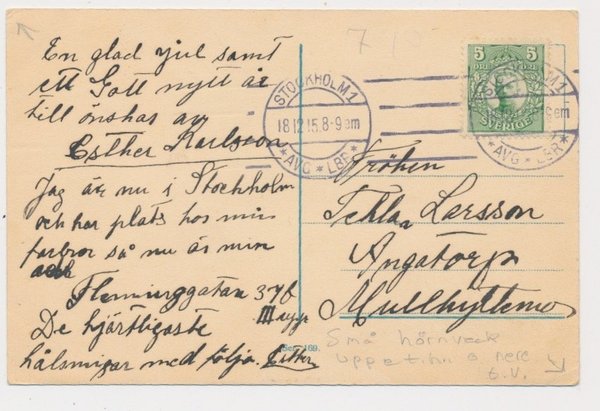 En glad jul samt
ett Gott nytt år
till önskas av
Esther Karlsson
Jag är nu i Stockholm
och har plats hos min
farbror så nu är min
Fleminggatan 37b
III upp
De hjärtligaste
hälsningar med följa. Esther
7
5 5
SVERIGE
STOCKHOLM 1
18.12.15.8-9em
AVG * LBR
STOCKHOLM 1
em
AVG * LBR
Fröken
Tekla Larsson
Ångatorp
Mullhyttemo
Små hörnveck
uppe t.h. o nere
t.v.